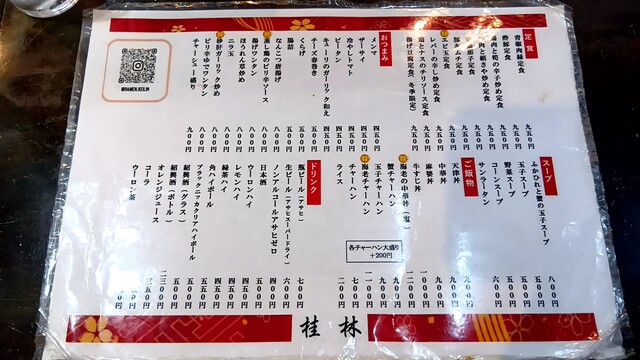 定食
青椒肉絲定食 九五〇円
酢豚定食 九五〇円
鶏肉と筍の辛子炒め定食 九五〇円
豚肉と絹さや炒め定食 九五〇円
豚キムチ定食 九五〇円
エビ玉定食 九五〇円
レバーの辛し炒め定食 九五〇円
鶏とナスのチリソース定食 九五〇円
揚げ豆腐定食(冬季限定) 九五〇円
おつまみ
メンマ 四五〇円
ザーサイ 四五〇円
冷やしトマト 四五〇円
キューリのガーリック和え
チーズ春巻き
くらげ
腸詰 五〇〇円
なんこつ唐揚げ
蒸し鶏のピリソース
揚げワンタン
ほうれん草炒め 八〇〇円
ニラ玉 八〇〇円
砂肝ガーリック炒め 八〇〇円
ピリ辛ゆでワンタン 八〇〇円
チャーシュー盛り 九〇〇円
@RAMEN.KEILIN
スープ
ふかひれと蟹の玉子スープ 八〇〇円
玉子スープ 五〇〇円
野菜スープ 五〇〇円
コーンスープ 五〇〇円
サンラータン 六〇〇円
ご飯物
天津丼 九〇〇円
中華丼 九〇〇円
麻婆丼 九〇〇円
牛すじ丼 一〇〇〇円
海老の中華丼(塩) 一二〇〇円
蟹チャーハン
玉子チャーハン
海老チャーハン 一一〇〇円
チャーハン 七〇〇円
ライス 二〇〇円
各チャーハン大盛り
+200円
ドリンク
瓶ビール(アサヒ) 七〇〇円
生ビール(アサヒスーパードライ) 六〇〇円
ノンアルコールアサヒゼロ 四〇〇円
日本酒 五〇〇円
ウーロンハイ 四五〇円
レモンハイ 四五〇円
緑茶ハイ 四五〇円
角ハイボール 五五〇円
ブラックニッカクリアハイボール
紹興酒(グラス)
紹興酒(ボトル) 二三〇〇円
オレンジジュース 三五〇円
コーラ
ウーロン茶
桂林